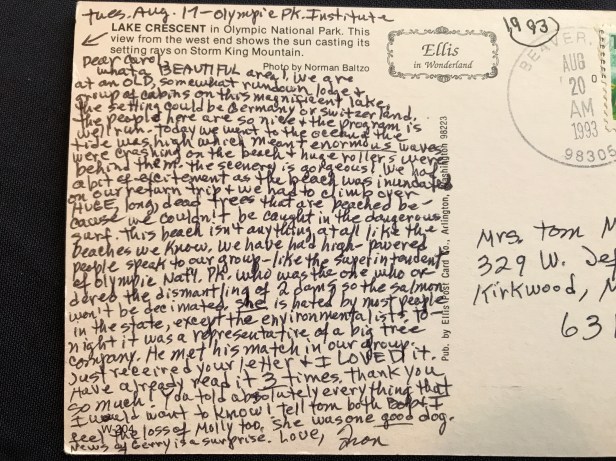 Tues. Aug. 17-Olympic Pk. Institute
LAKE CRESCENT in Olympic National Park. This
view from the west end shows the sun casting its
setting rays on Storm King Mountain.
Photo by Norman Baltzo
Dear Carol,
What a BEAUTIFUL area! We are
at an OLD, somewhat rundown lodge +
group of cabins on this magnificent lake.
The setting could be Germany or Switzerland.
The people here are so nice + the program is
well run. Today we went to the ocean + the
tide was high which meant enormous waves
were crashing on the beach + huge rollers were
behind them. The scenery is gorgeous! We had
a bit of excitement as the beach was inundated
on our return trip + we had to climb over
HUGE, long dead trees that are beached be-
cause we couldn't be caught in the dangerous
surf. This beach isn't anything at all like the
beaches we know. We have had high-powered
people speak to our group-like the superintendent
of Olympic Nat'l. Pk. who was the one who or-
dered the dismantling of 2 dams so the salmon
won't be decimated. She is hated by most people
in the state, except the environmentalists. To-
night it was a representative of a big tree
company. He met his match in our group.
Just received your letter + I LOVED it.
Have already read it 3 times. Thank you
so much! You told absolutely everything that
I would want to know! Tell Tom both
feel the loss of Molly too. She was one good dog.
News of Gerry is a surprise. Love,
W-304
Ellis
in Wonderland
Pub. by Ellis Post Card Co., Arlington, Washington 98223
(1993)
BEAVER,
AUG
20
AM
1993
98305
Mrs. Tom M
329 W. Jef
Kirkwood, M
631